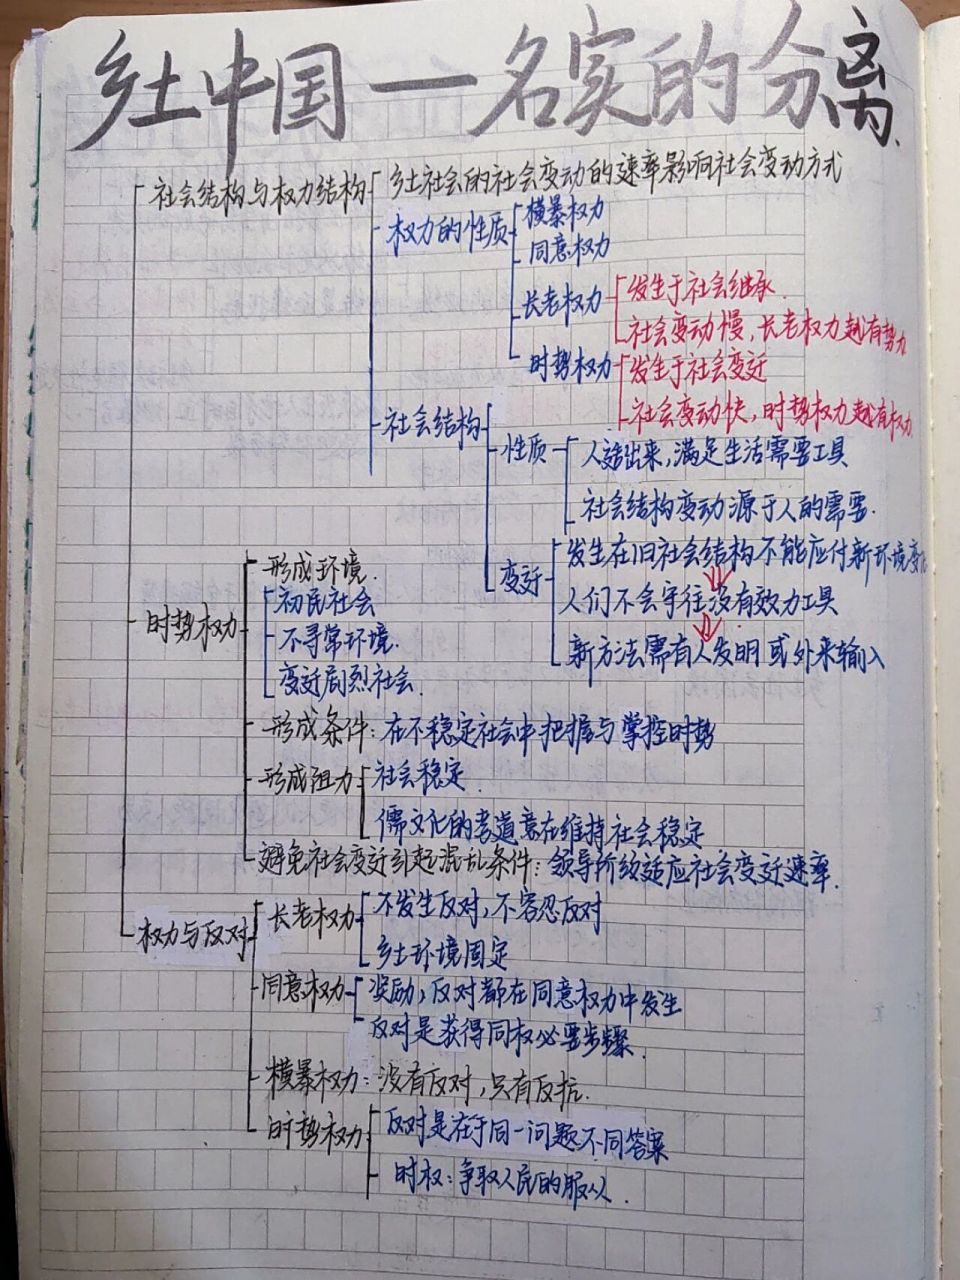 乡土中国—名实的分离.
社会结构与权力结构
乡土社会的社会变动的速率影响社会变动方式
权力的性质
横暴权力
同意权力
长老权力
发生于社会继承.
社会变动慢,长老权力越有势力
时势权力
发生于社会变迁
社会变动快,时势权力越有权力
社会结构
性质
人造出来,满足生活需要工具
社会结构变动源于人的需要.
变迁
发生在旧社会结构不能应付新环境变化
人们不会守住没有效力工具
新方法需有人发明或外来输入
时势权力
形成环境.
初民社会
不寻常环境.
变迁剧烈社会.
形成条件:在不稳定社会中把握与掌控时势
形成阻力
社会稳定.
儒文化的孝道意在维持社会稳定
避免社会变迁引起混乱条件:领导阶级适应社会变迁速率.
权力与反对
长老权力
不发生反对,不容忍反对
乡土环境固定
同意权力
奖励,反对都在同意权力中发生
反对是获得同权必要步骤.
横暴权力:没有反对,只有反抗.
时势权力
反对是在于同一问题不同答案
时权:争取人民的服从.